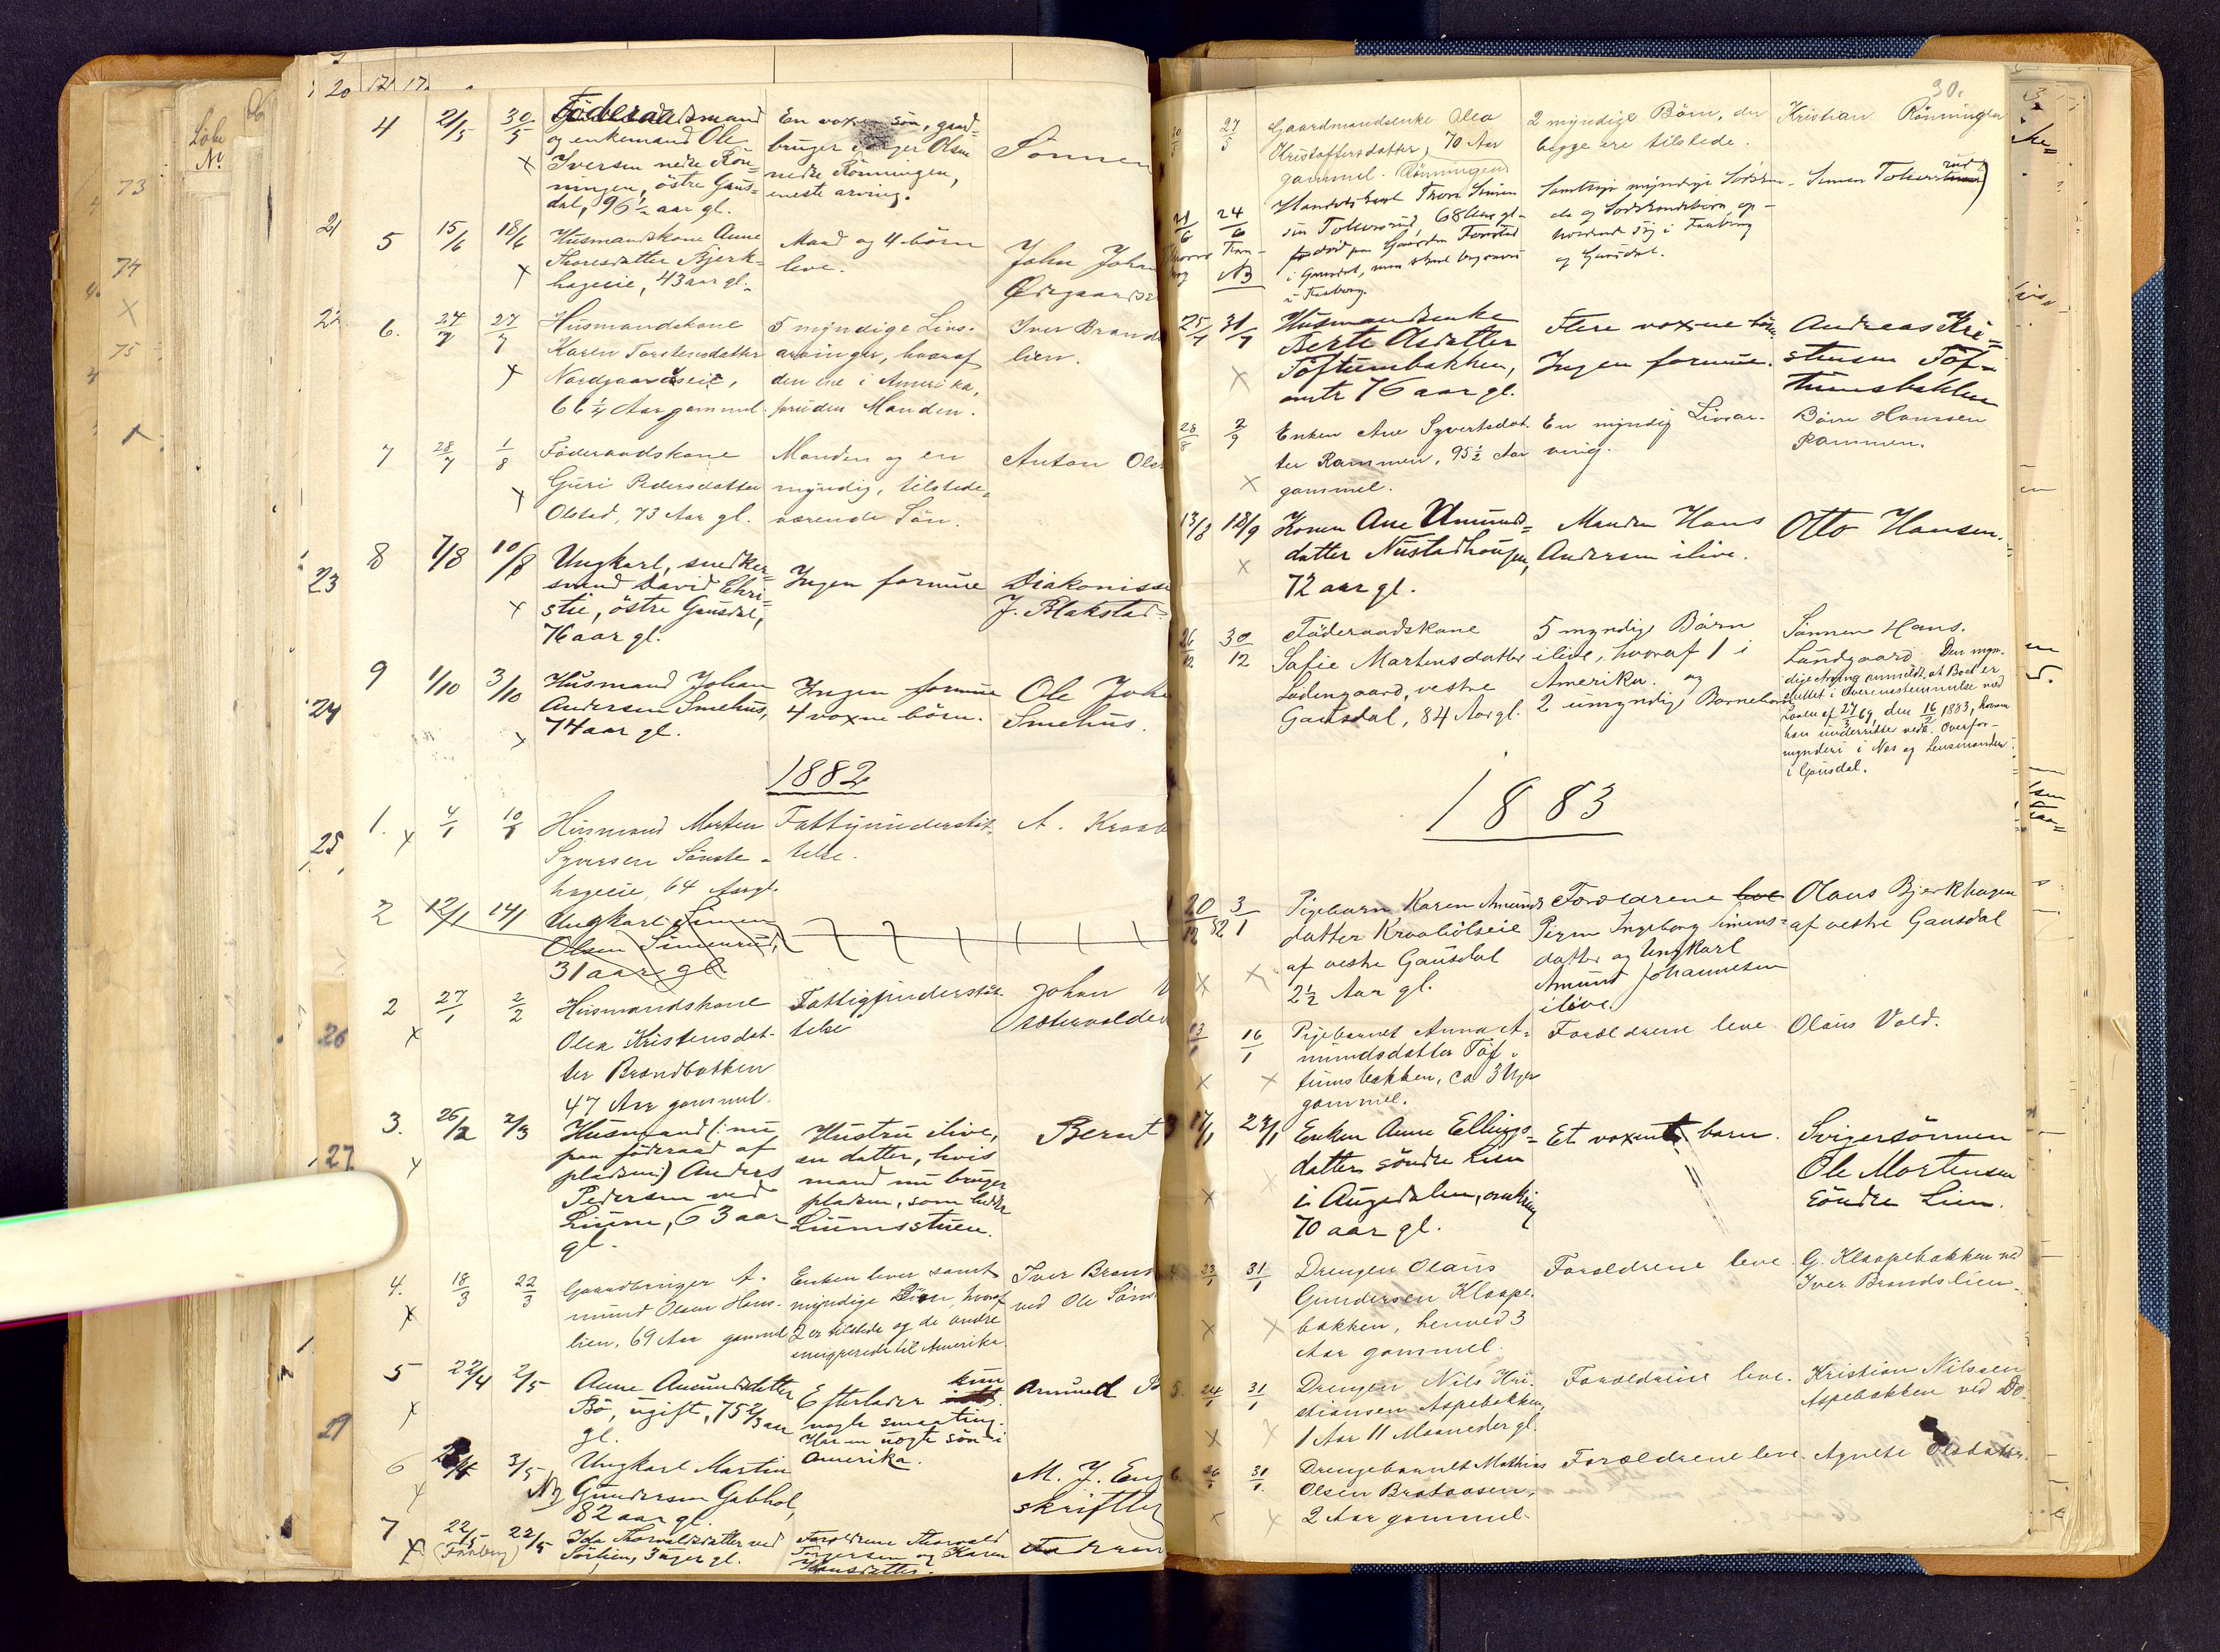 4 21/5 30/5 Föderaadsmand
og enkemand Ole
Iversen nedre Rön=
ningen, östre Gaus=
dal, 96½ aar gl.
En voxen sön, gaard=
bruger Olsen
nedre Rönningen,
eneste arving.
Sönnen
5 15/6 18/6 Husmandskone Anne
Thoresdatter Bjerk=
hageeie, 43 aar gl.
Mand og 4 börn
leve.
John John
Ödegaards
6. 24/7 27/7 Husmandskone
Karen Torstensdatter
Nordgaardseie,
66¼ Aar gammel.
5 myndige Livs-
arvinger, hvoraf
den ene i Amerika,
foruden Manden.
Iver Brands
lien.
7 28/7 1/8 Föderaadskone
Guri Pedersdatter
Olstad, 73 Aar gl.
Manden og en
myndig, tilstede=
værende Sön.
Anton Ols
8 7/8 10/8 Ungkarl, snedker=
svend David Chri=
stie, östre Gausdal,
76 aar gl.
Ingen formue
Diakonisse
J. Blakstad
9 1/10 3/10 Husmand Johan
Andersen Smehus,
74 aar gl.
Ingen formue
4 voxne börn.
Ole Joh
Smehus.
1882
1. 4/1 10/1 Husmand Morten
Syversen Sönste-
hageeie, 64 Aar gl.
Fattigunderstöt-
telse.
A. Kraab
2 12/1 14/1 Ungkarl Simen
Olsen Simenrud,
31 aar gl.
2 27/1 2/2 Husmandskone
Olea Kristensdat-
ter Brændbakken
47 Aar gammel.
Fattigunderstöt
telse
Johan
3. 26/2 2/3 Husmand (: nu
paa föderaad af
pladsen:) Anders
Pedersen ved
Liume, 63 aar
gl.
Hustru ilive,
en datter, hvis
mand nu bruger
pladsen, som heder
Liumsstuen.
Bernt
4. 18/3 22/3 Gaardbruger A-
mund Olsen Hans-
lien, 69 Aar gammel
Enken lever samt
myndige Börn, hvoraf
2 er tilstede og de andre
emigrerede til Amerika.
Iver Brand
ved Ole Sönst
5 22/4 2/5 Anne Amundsdatter
Bö, ugift, 75⅔ aar
gl.
Efterlader kun
nogle smaating.
Har en uægte sön i
Amerika.
Amund
6 3/5 Ungkarl Martin
Gundersen Gabhol,
82 aar gl.
M. J. Eng
skriftlig
7 22/5 22/5 Ida Thorvaldsdatter ved
(Faaberg) Sörlien, 3 uger gl.
Forældrene Thorvald
Torgersen og Karen
Hansdatter.
Faderen
30.
27/5 Gaardmandsenke Olea
Kristoffersdatter, 70 Aar
gammel. (Rönningen)
2 myndige Börn, der
begge ere tilstede.
Kristian Rönningen
21/6 24/6 Handelskarl Thor Simen
sen Tokersrud, 68 Aar gl-
död paa Gaarden Forstad
i Gausdal, men skal begraves
i Faaberg.
Samtlige myndige Södsken-
de og Södskendebörn op-
holdende sig i Faaberg
og Gausdal.
Simen Tokersrud
25/7 31/7 Husmandsenke
Berte Olsdatter
Töftumbakken,
omtr 76 aar gl.
Flere voxne börn.
Ingen formue.
Andreas Kri=
stensen Töf=
tumsbakken
28/8 2/9 Enken Ane Syvertsdat-
ter Rammen, 95½ Aar
gammel.
En myndig Livsar-
ving.
Börre Hanssen
Rammen.
13/8 18/9 Konen Ane Amunds=
datter Nustadhougen,
72 aar gl.
Manden Hans
Andersen ilive.
Otto Hansen.
26/12 30/12 Föderaadskone
Sofie Martensdatter
Ladengaard, vestre
Gausdal, 84 Aar gl.
5 myndige Börn
ilive, hvoraf 1 i
Amerika. og
2 umyndige Barnebörn
Sönnen Hans.
Landgaard. Den myn-
dige Arving anmeldt, at Boet er
skiftet i Overensstemmelse med
Loven af 27/3 69, den 16/2 1883, hvorom
han underretter vedk. Overfor-
mynderi i Nes og Lensmanden
i Gausdal.
1883
20/12 82 3/1 Pigebarn Karen Amunds
datter Kraaböleie
af vestre Gausdal
2½ Aar gl.
Forældrene
Pigen Ingeborg Simens=
datter og Ungkarl
Amund Johannesen
ilive.
Olaus Bjerkhagen
af vestre Gausdal
13/1 16/1 Pigebarnet Anna A-
mundsdatter Töf-
tumsbakken, ca 3 Uger
gammel.
Forældrene leve.
Olaus Vold.
17/1 27/1 Enken Anne Ellings=
datter söndre Lien
i Augedalen, omkring
70 aar gl.
Et voxent barn.
Svigersönnen
Ole Mortensen
Söndre Lien.
23/1 31/1 Drengen Olaus
Gundersen Klaape-
bakken, henved 3
Aar gammel.
Forældrene leve.
G. Klaapebakken ved
Iver Brandslien-
5. 24/1 31/1 Drengen Nils Kri-
stiansen Aspebakken,
1 Aar 11 Maaneder gl.
Forældrene leve.
Kristian Nilssen
Aspebakken ved Do-
6. 26/1 31/1. Drengebarnet Mathias
Olsen Brataasen,
2 Aar gammel.
Forældrene leve.
Agnete Olsdatter.